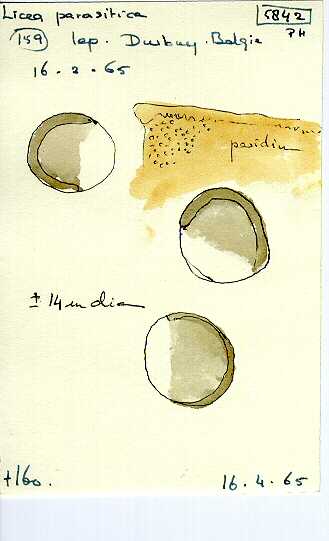 Licea parasitica 5842
159 lep. Durbuy. Belgie PH
16-2-65
peridiu
± 14 u dia
+160. 16.4.65